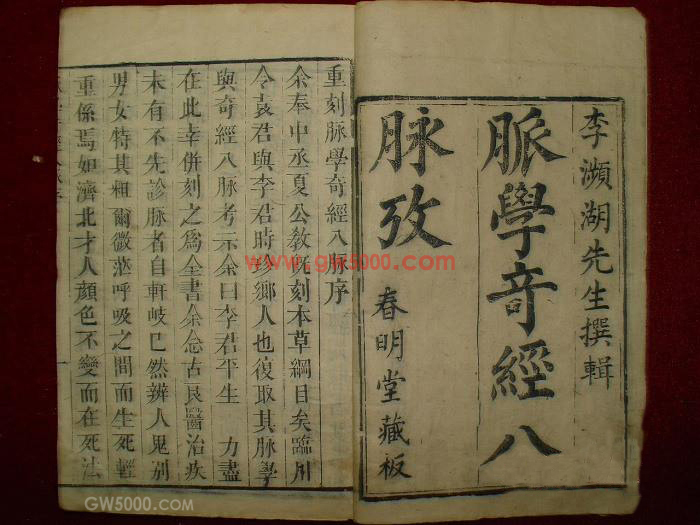 李瀕湖先生撰輯
脈學奇經八
脉攷
春明堂藏板
重刻脈學奇經八脉序
余奉中丞夏公教旣刻本草綱目矣臨川
令袁君與李君時珍鄉人也復取其脉學
與奇經八脉考示余曰李君平生 力盡
在此幸併刻之爲全書余念古良醫治疾
未有不先診脉者自軒岐已然辨人鬼别
男女特其粗爾微茫呼吸之間而生死輕
重係焉如濟北才人顏色不變而在死法
www.gw5000.com
GW5000.COM